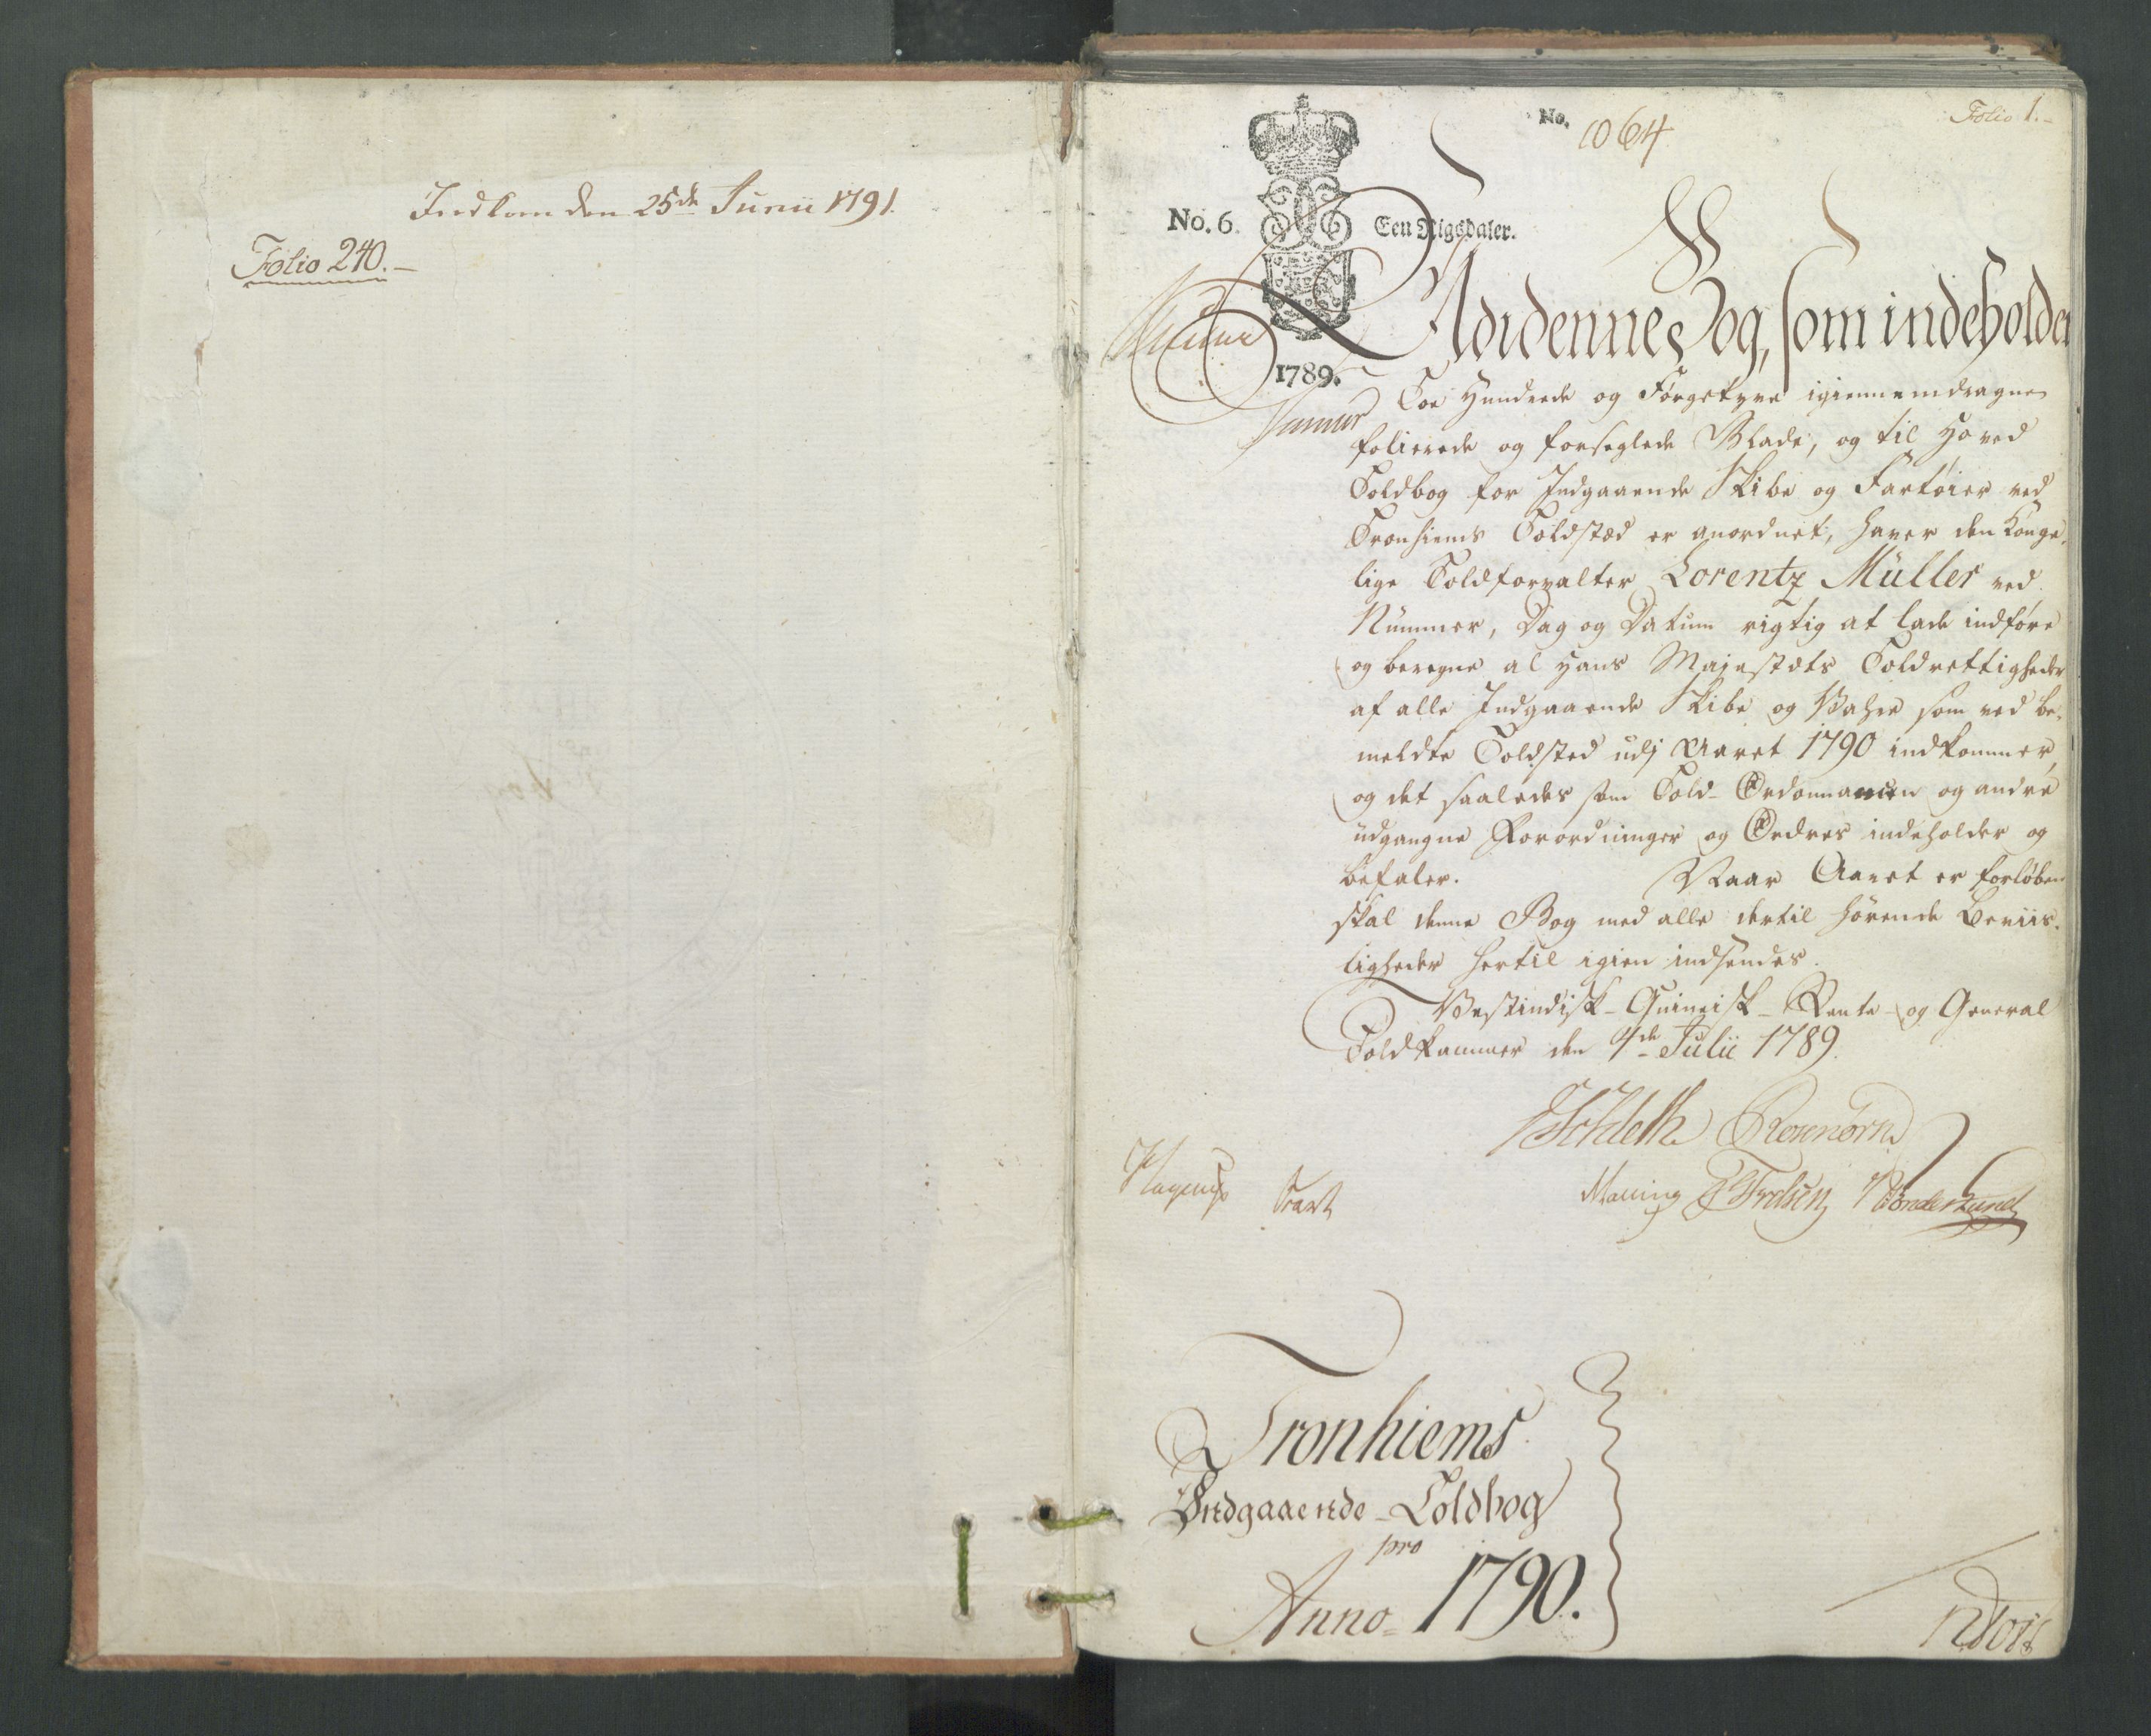 Indkom den 25de Junii 1791.
Folio 240.-
No. 1064
Folio 1.-
No. 6. Een Rigsdaler.
1789.
Udi denne Bog, som indeholder
Toe Hundrede og Førgetyve igiennemdragne
folierede og forseglede Blade, og til Hoved
Toldbog for Indgaaende Skibe og Fartøier ved
Tronhiems Toldsted er anordnet, haver den Konge-
lige Toldforvalter Lorentz Müller ved
Nummer, Dag og Datum rigtig at lade indføre
og beregne al Hans Majestæts Toldrettigheder
af alle Indgaaende Skibe og Vahre som ved be-
meldte Toldsted udj Aaret 1790 indkommer,
og det saaledes som Told-Ordonnancen og andre
udgangne Forordninger og Ordres indeholder og
befaler. Naar Aaret er forløben
skal denne Bog med alle dertil hørende Beviis-
ligheder hertil igien indsendes.
Vestindisk-Guineisk-Rente- og General
Toldkammer den 4de Julii 1789.
Schleth Rosenørn
Hagerup Malling
Tronhiems
Indgaaende-Toldbog
pro
Anno 1790.